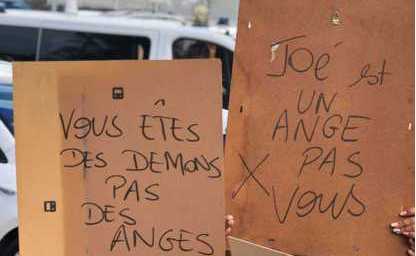 VOUS ÊTES
DES DEMONS
PAS
DES
ANGES
JOÉ est
UN
ANGE
X PAS
VOUS